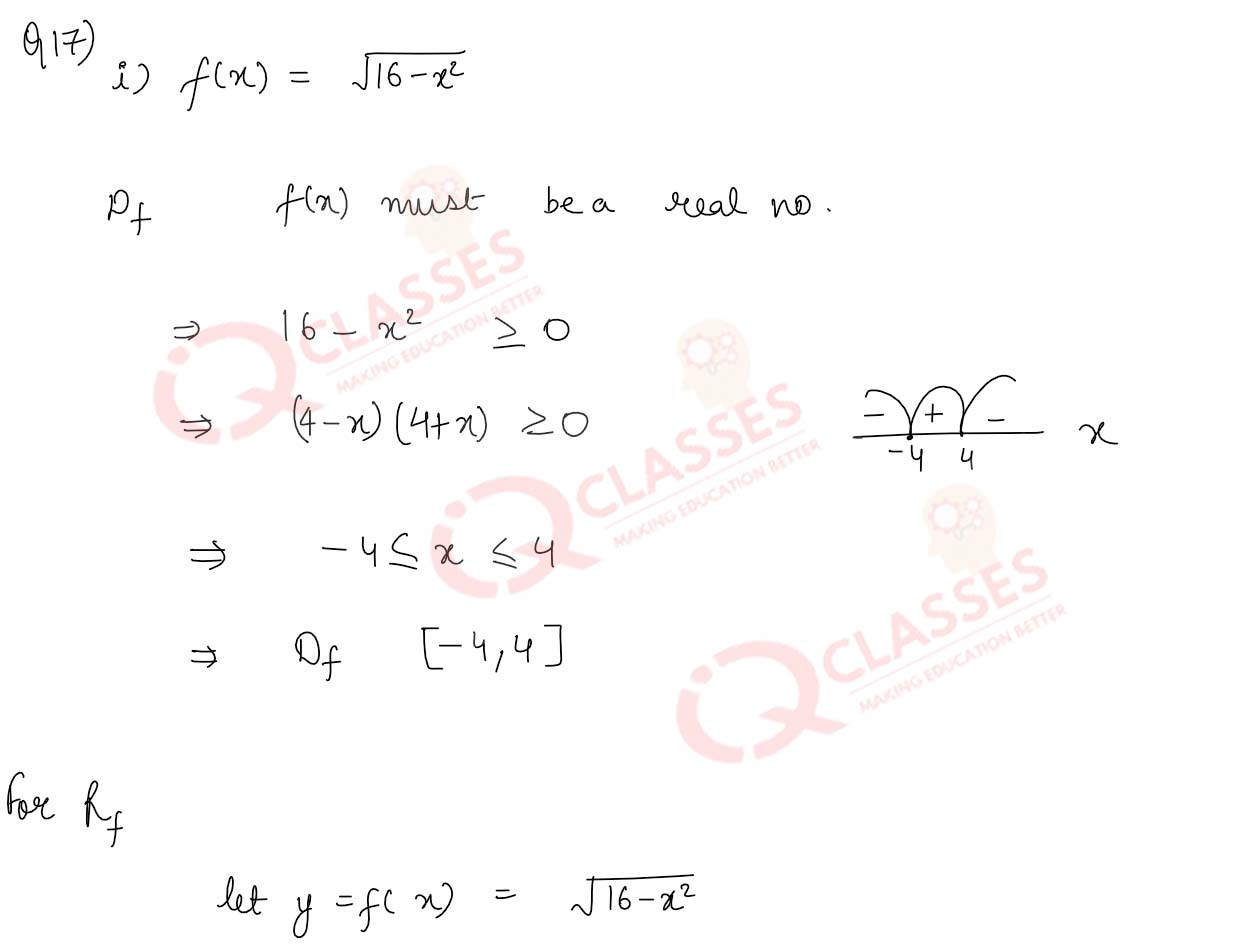 Q17)
i) f(x) = √16-x²
Df f(x) must be a real no.
⇒ 16 - x² ≥ 0
⇒ (4-x)(4+x) ≥ 0
- + -
-4 4 x
⇒ -4 ≤ x ≤ 4
⇒ Df [-4,4]
for Rf
let y = f(x) = √16-x²
iQ CLASSES
MAKING EDUCATION BETTER
iQ CLASSES
MAKING EDUCATION BETTER
iQ CLASSES
MAKING EDUCATION BETTER